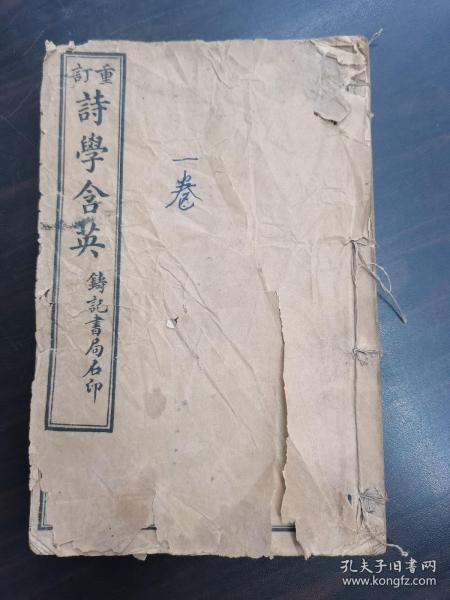 重訂
詩學含英
鑄記書局石印
一卷
孔夫子旧书网
www.kongfz.com